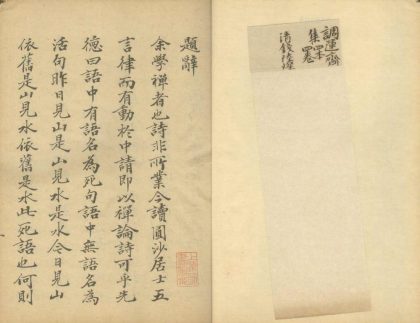 調運齋
集
四卷
清錢陸燦
題辭
余學禪者也詩非所業今讀圓沙居士五
言律而有動於中請即以禪論詩可乎先
德曰語中有語名為死句語中無語名為
活句昨日見山是山見水是水今日見山
依舊是山見水依舊是水此死語也何則